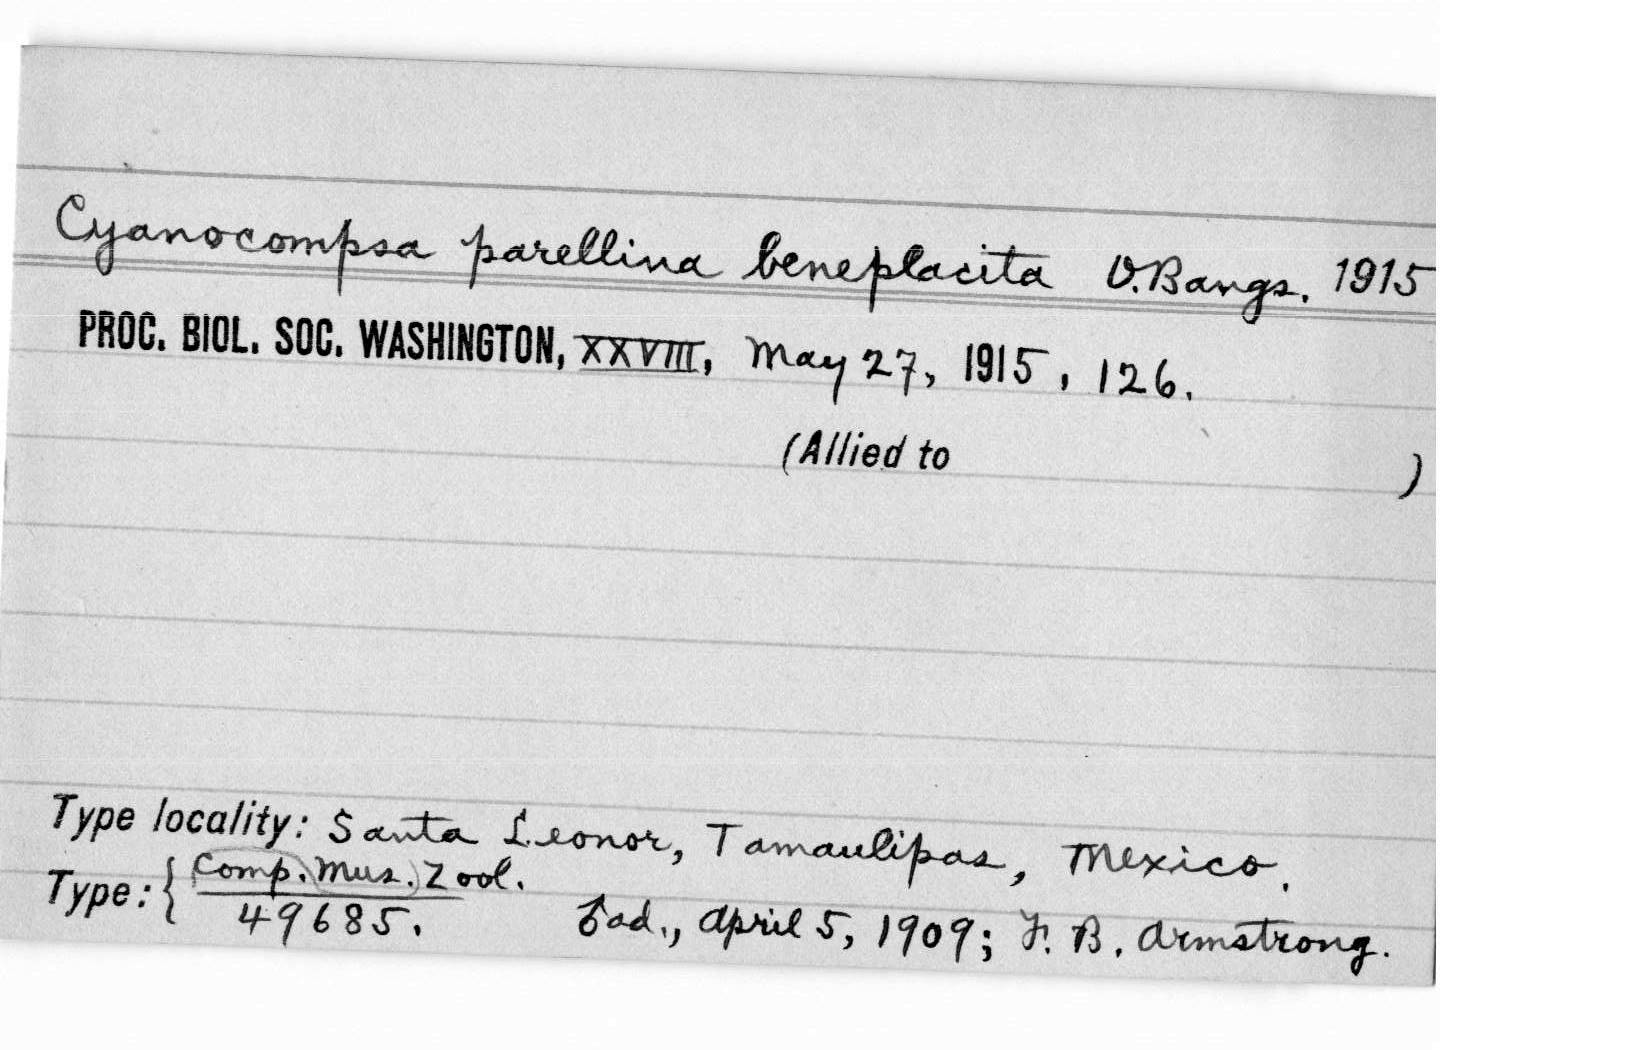 Cyanocompsa parellina beneplacita O. Bangs. 1915
PROC. BIOL. SOC. WASHINGTON, XXVIII, May 27, 1915, 126.
(Allied to )
Type locality: Santa Leonor, Tamaulipas, Mexico.
Type: { Comp. Mus. Zool.
49685. ♂ad., April 5, 1909; F. B. Armstrong.